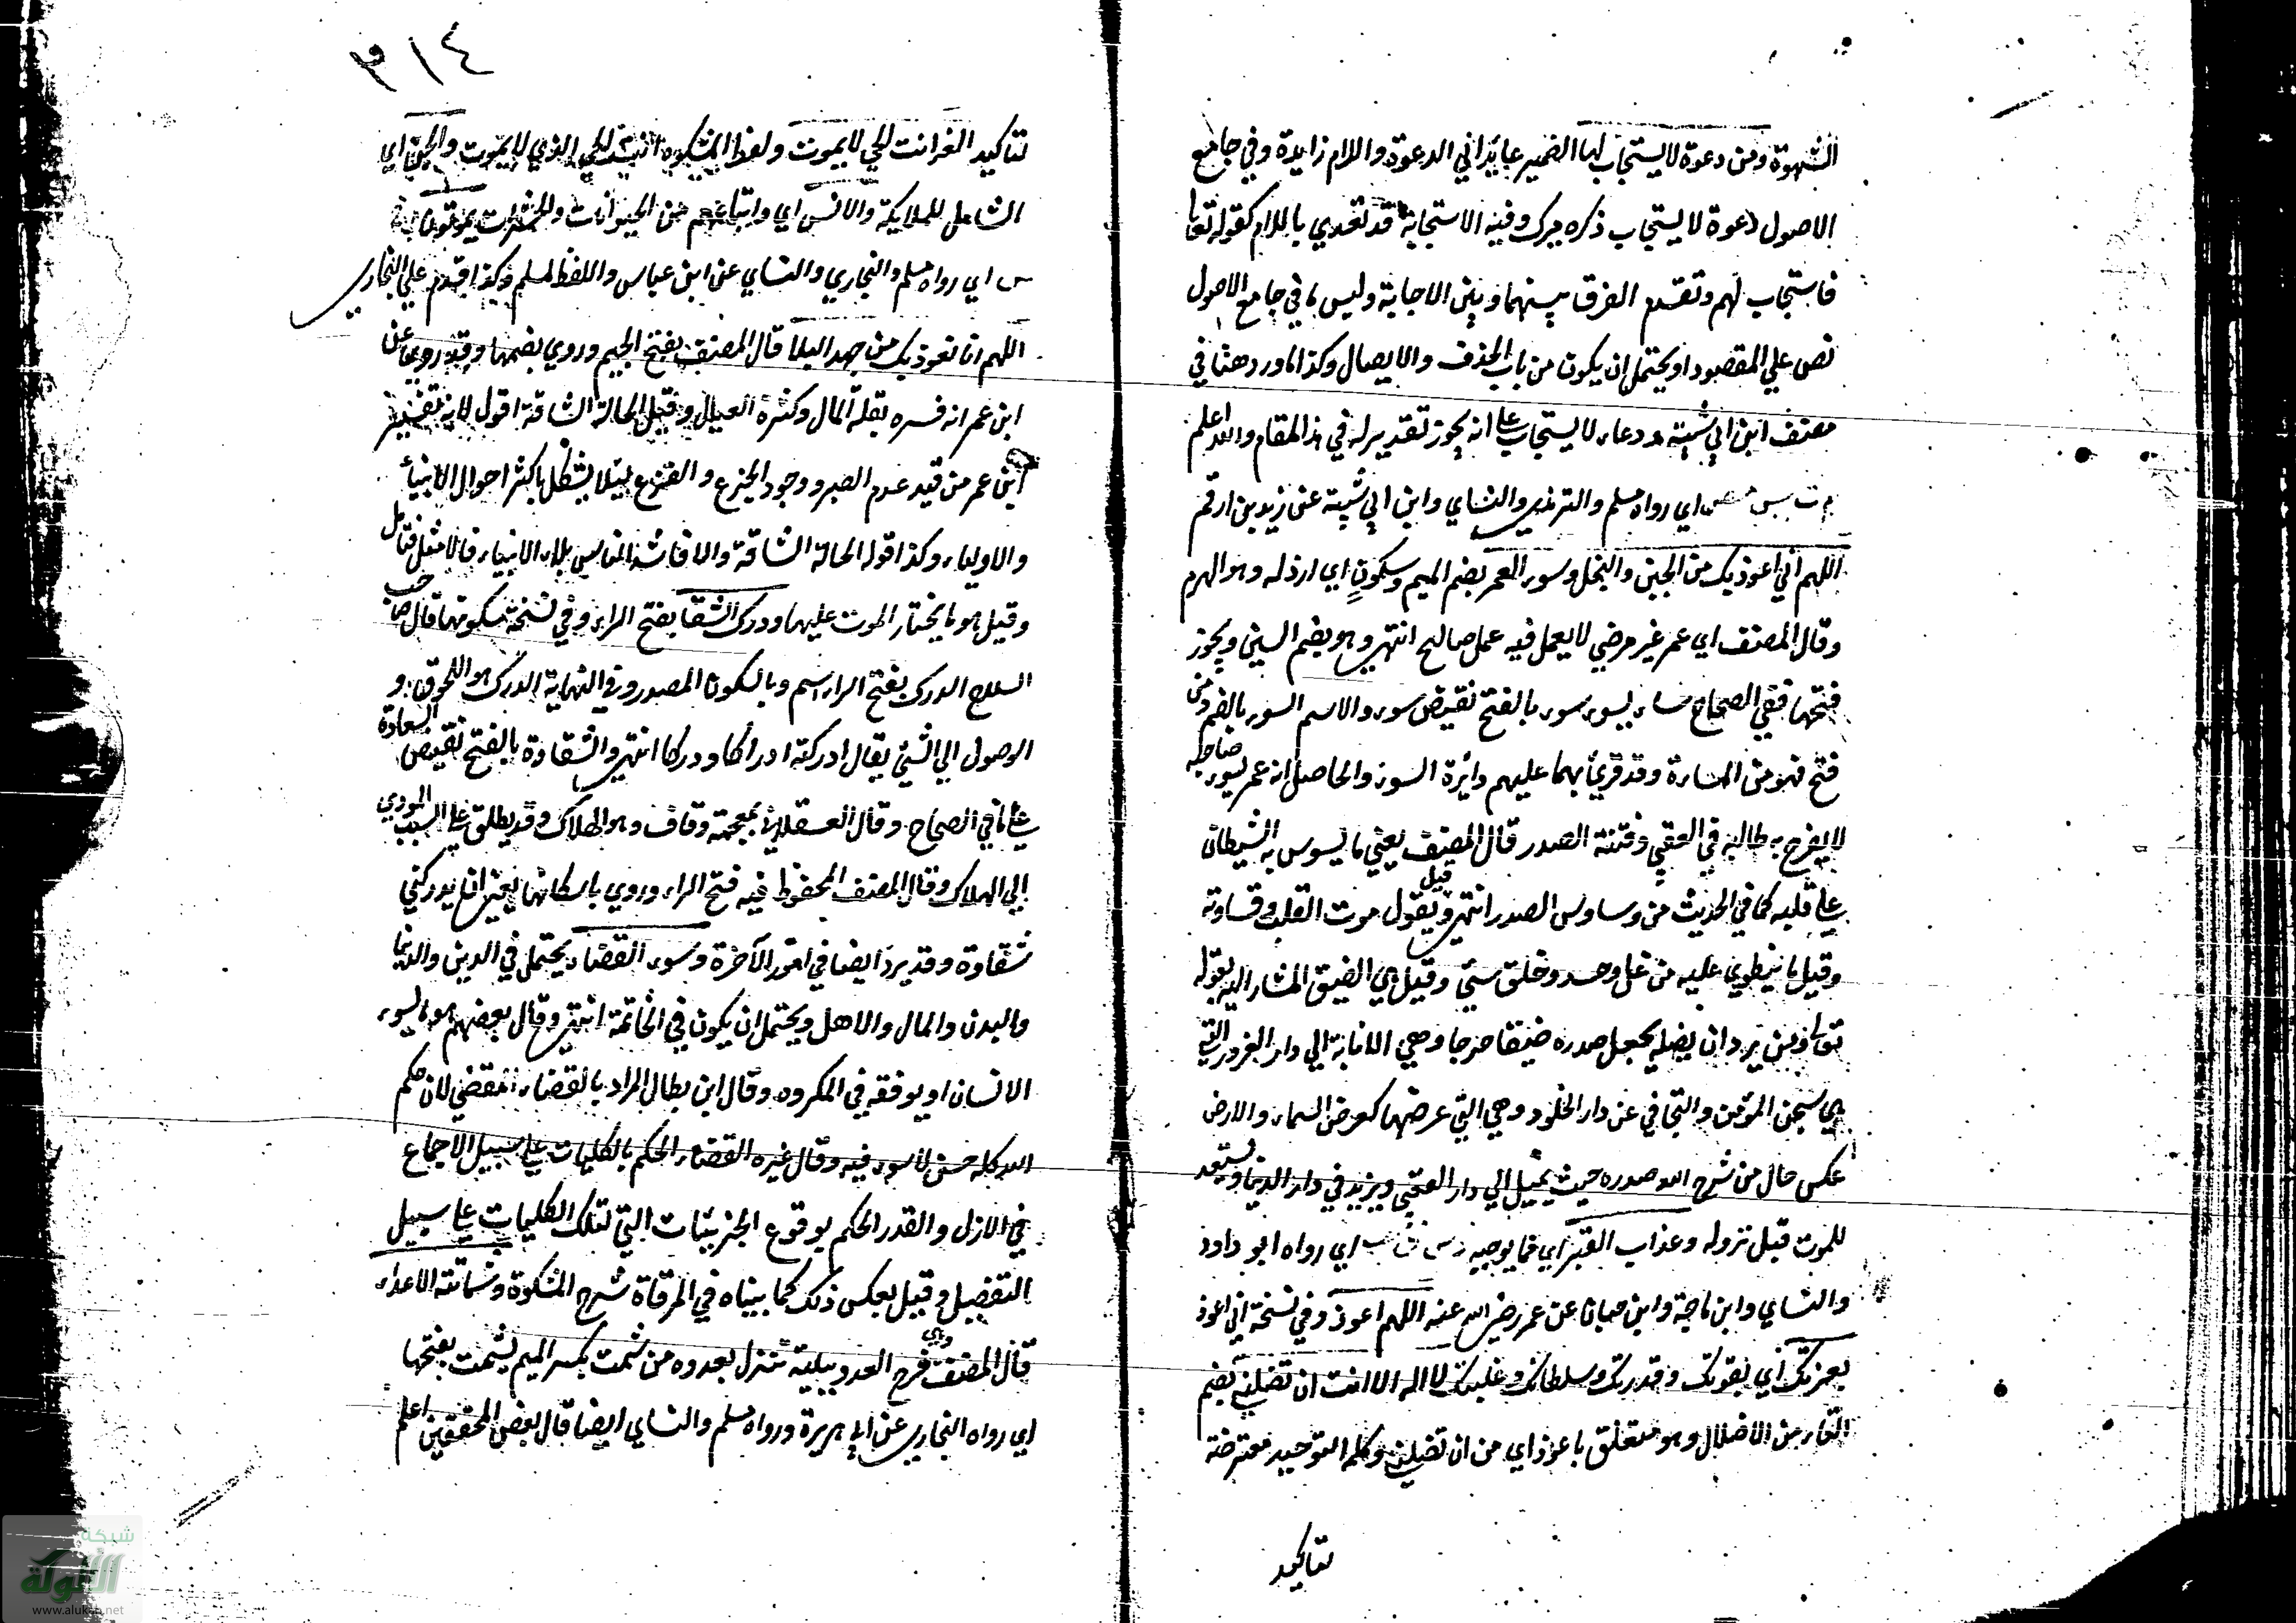 الشهوة ومن دعوة لا يستجاب لها الضمير عايد الي الدعوة واللام زايدة وفي جامع
الاصول دعوة لا يستجاب ذكره ميرك وفيه الاستجابة قد تتعدي باللام كقوله تعا
فاستجاب لهم وتقدم الفرق بينهما وبين الاجابة وليس ما في جامع الاصول
نص علي المقصود او يحتمل ان يكون من باب الحذف والايصال وكذا ما ورد هنا في
مصنف ابن ابي شيبة ودعاء لا يستجاب علي انه يجوز تقدير له في هذا المقام والله اعلم
م ت س مص اي رواه مسلم والترمذي والنساي وابن ابي شيبة عن زيد بن ارقم
اللهم اني اعوذ بك من الجبن والبخل وسوء العمر بضم الميم وسكون اي ارذله وهو الهرم
وقال المصنف اي عمر غير مرضي لا يعمل فيه عمل صالح انتهي وهو بضم السين ويجوز
فتحها ففي الصحاح ساء يسوء سوء بالفتح نقيض سوء والاسم السوء بالضم ومن
فتح فهو من المساءة وقد قريئ بهما عليهم دايرة السوء والحاصل انه عمر يسوء صاحبه
لا يفرح به طالبه في العقبي وفتنة الصدر قال المصنف يعني ما يسوس به الشيطان
علي قلبه كما في الحديث من وساوس الصدر انتهي وقيل يقول موت القلب وقساوته
وقيل ما ينطوي عليه من غل وحسد وخلق سئي وقيل هي الضيق المشار اليه بقوله
تعا ومن يرد ان يضله يجعل صدره ضيقا حرجا وهي الانابة الي دار الغرور التي
هي سجن المومن والتجافي عن دار الخلود وهي التي عرضها كعرض السماء والارض
عكس حال من شرح الله صدره حيث يميل الي دار العقبي ويزيد في دار الدنيا ويستعد
للموت قبل نزوله وعذاب القبر اي فما يوجبه د س ق حب اي رواه ابو داود
والنساي وابن ماجة وابن حبان عن عمر رضي الله عنه اللهم اعوذ وفي نسخة اني اعوذ
بعزتك اي بقوتك وقدرتك وسلطانك وغلبتك لا اله الا انت ان تضلني بضم
التاء من الاضلال وهو متعلق باعوذ اي من ان تضلني وكلمة التوحيد معترضة
تتاكيد
٣١٤
لتاكيد العز انت الحي لا يموت ولفظ المشكوة انت الحي الذي لا يموت والجن اي
الشامل للملايكة والانس اي واتباعهم من الحيوانات والحشرات يموتون
س اي رواه مسلم والبخاري والنساي عن ابن عباس واللفظ لمسلم وكذا قدم علي البخاري
اللهم انا نعوذ بك من جهد البلا قال المصنف بفتح الجيم وروي بضمها وقد روي عن
ابن عمر انه فسره بقلة المال وكثرة العيال وقيل الحالة الشاقة اقول لابد لتفسير
ابن عمر من قيد عدم الصبر ووجود الجزع والفزع ليلا يشكل باكثر احوال الانبياء
والاولياء وكذا قوله الحالة الشاقة والا فاشد الناس بلاء الانبياء فالامثل فتامل
وقيل هو ما يختار الموت عليها ودرك الشقا بفتح الراء وفي نسخة بسكونها قال صاحب
السلاح الدرك بفتح الراء اسم وبالسكون المصدر وفي النهاية الدرك هو اللحوق و
الوصول الي الشئ يقال ادركته ادراكا ودركا انتهي والشقاوة بالفتح نقيض السعادة
علي ما في الصحاح وقال العسقلاني بمعجمة وقاف وهو الهلاك وقد يطلق علي السبب المودي
الي الهلاك وقال المصنف المحفوظ فيه فتح الراء وروي باسكانها يعني ان يدركني
شقاوة وقد يرد ايضا في امور الآخرة وسوء القضاء يحتمل في الدين والدنيا
والبدن والمال والاهل ويحتمل ان يكون في الخاتمة انتهي وقال بعضهم هو ما يسوء
الانسان او يوقفه في المكروه وقال ابن بطال المراد بالقضاء المقضي لان حكم
الله كله حسن لا سوء فيه وقال غيره القضاء الحكم بالكليات علي سبيل الاجماع
في الازل والقدر الحكم بوقوع الجزييات التي لتلك الكليات علي سبيل
التفضيل وقيل بعكس ذلك كما بيناه في المرقاة شرح المشكوة وشماتة الاعداء
قال المصنف وهي فرح العدو ببلية تنزل بعدوه من شمت بكسر الميم يشمت بفتحها
اي رواه البخاري عن ابي هريرة ورواه مسلم والنساي ايضا قال بعض المحققين اعلم
شبكة
الألوكة
www.alukah.net